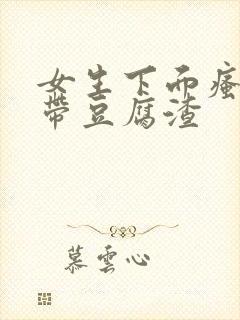 女生下面瘙
带豆腐渣
慕雲心